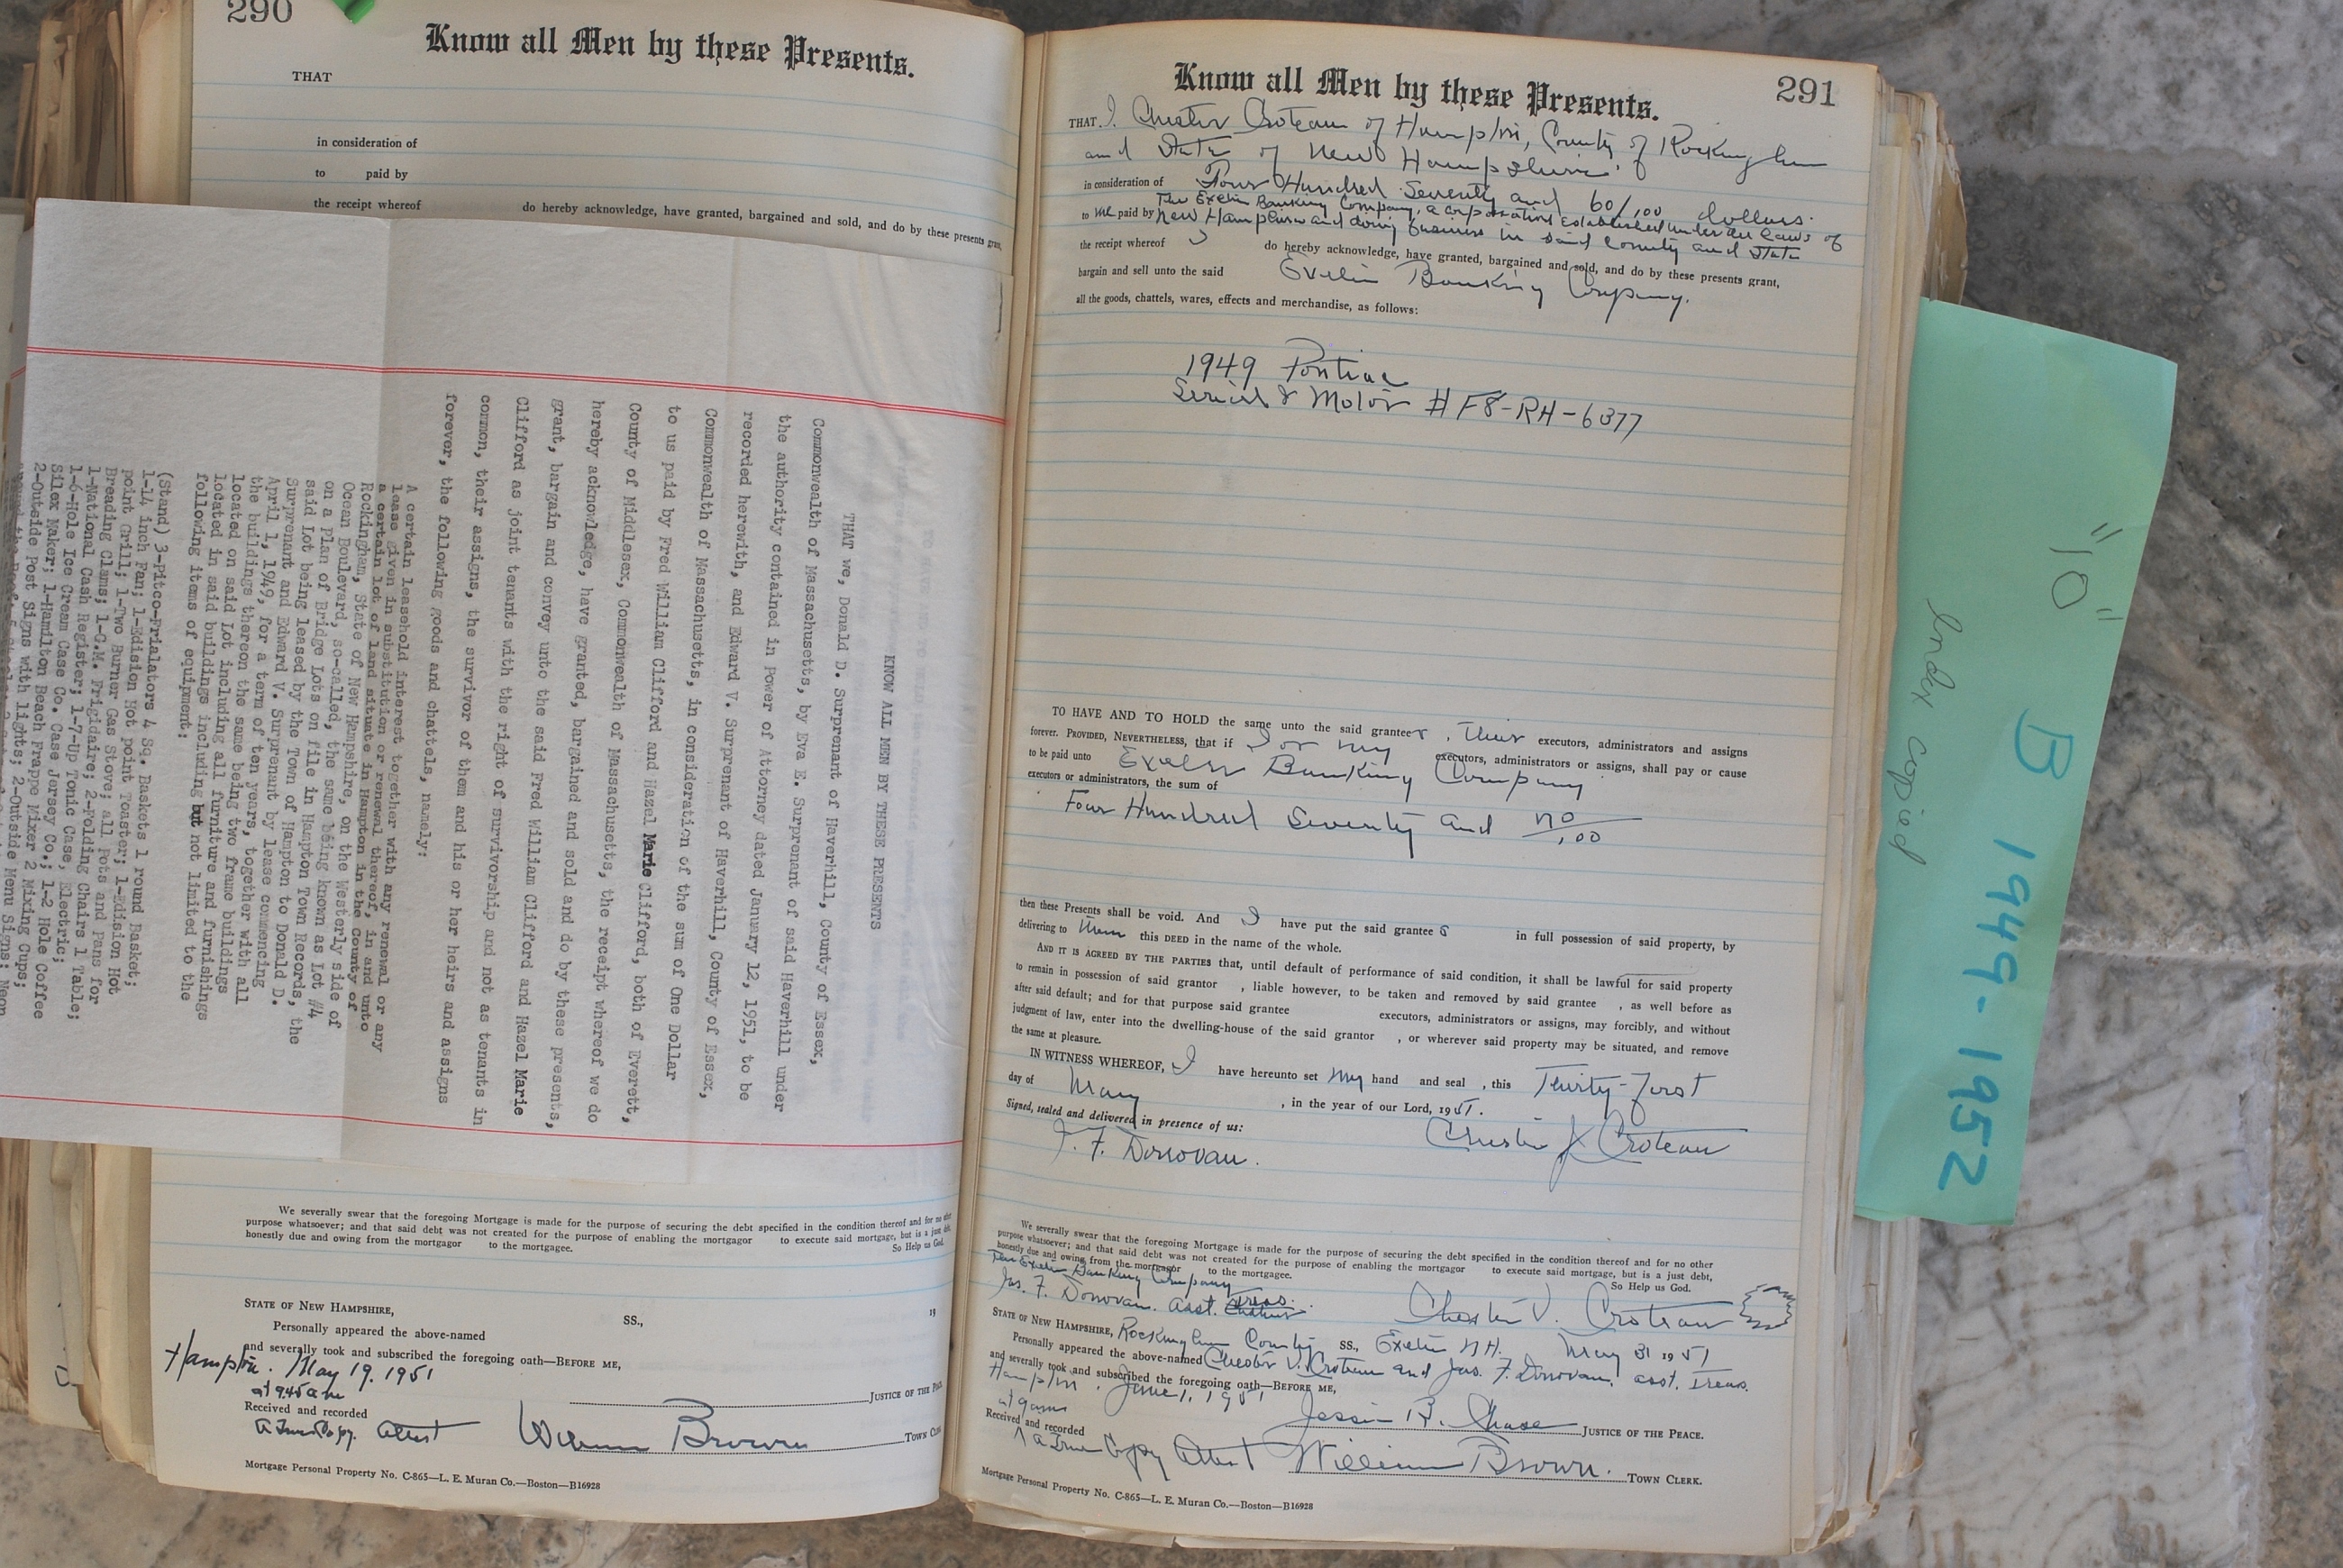 290
Know all Men by these Presents.
THAT
in consideration of
to paid by
the receipt whereof do hereby acknowledge, have granted, bargained and sold, and do by these presents grant,
KNOW ALL MEN BY THESE PRESENTS
THAT we, Donald D. Surprenant of Haverhill, County of Essex,
Commonwealth of Massachusetts, by Eva E. Surprenant of said Haverhill under
the authority contained in Power of Attorney dated January 12, 1951, to be
recorded herewith, and Edward V. Surprenant of Haverhill, County of Essex,
Commonwealth of Massachusetts, in consideration of the sum of One Dollar
to us paid by Fred William Clifford and Hazel Marie Clifford, both of Everett,
County of Middlesex, Commonwealth of Massachusetts, the receipt whereof we do
hereby acknowledge, have granted, bargained and sold and do by these presents,
grant, bargain and convey unto the said Fred William Clifford and Hazel Marie
Clifford as joint tenants with the right of survivorship and not as tenants in
common, their assigns, the survivor of them and his or her heirs and assigns
forever, the following goods and chattels, namely:
A certain leasehold interest together with any renewal or any
lease given in substitution or renewal thereof, in and unto
a certain lot of land situate in Hampton in the County of
Rockingham, State of New Hampshire, on the Westerly side of
Ocean Boulevard, so-called, the same being known as Lot #4
on a plan of Bridge Lots on file in Hampton Town Records, the
said Lot being leased by the Town of Hampton to Donald D.
Surprenant and Edward V. Surprenant by lease commencing
April 1, 1949, for a term of ten years, together with all
the buildings thereon the same being two frame buildings
located on said Lot including all furniture and furnishings
located in said buildings including but not limited to the
following items of equipment:
(Stand) 3-Pitco-Frialators 4 Sq. Baskets 1 round Basket;
1-14 inch Fan; 1-Edision Hot point Toaster; 1-Edision Hot
point Grill; 1-Two Burner Gas Stove; all Pots and Pans for
Breading Clams; 1-G.M. Frigidaire; 2-Folding Chairs 1 Table;
1-National Cash Register; 1-7-Up Tonic Case, Electric;
1-6-Hole Ice Cream Case Co. Case Jersey Co.; 1-2 Hole Coffee
Silex Maker; 1-Hamilton Beach Frappe Mixer 2 Mixing Cups;
2-Outside Post Signs with lights; 2-Outside Menu Signs; Neon
We severally swear that the foregoing Mortgage is made for the purpose of securing the debt specified in the condition thereof and for no other
purpose whatsoever; and that said debt was not created for the purpose of enabling the mortgagor to execute said mortgage, but is a just debt,
honestly due and owing from the mortgagor to the mortgagee. So Help us God.
STATE OF NEW HAMPSHIRE, SS., 19
Personally appeared the above-named
and severally took and subscribed the foregoing oath—BEFORE ME,
Hampton. May 19, 1951
at 9.45 a m
JUSTICE OF THE PEACE
Received and recorded
A True Copy Attest William Brown TOWN CLERK
Mortgage Personal Property No. C-865—L. E. Muran Co.—Boston—B16928
291
Know all Men by these Presents.
THAT I, Chester Croteau of Hampton, County of Rockingham
and State of New Hampshire
in consideration of Four Hundred Seventy and 60/100 dollars.
to me paid by The Exeter Banking Company, a corporation established under the laws of
New Hampshire and doing business in said County and State
the receipt whereof do hereby acknowledge, have granted, bargained and sold, and do by these presents grant,
bargain and sell unto the said Exeter Banking Company.
all the goods, chattels, wares, effects and merchandise, as follows:
1949 Pontiac
Serial & Motor # F8-RH-6377
TO HAVE AND TO HOLD the same unto the said grantees, their executors, administrators and assigns
forever. PROVIDED, NEVERTHELESS, that if I or my executors, administrators or assigns, shall pay or cause
to be paid unto Exeter Banking Company
executors or administrators, the sum of
Four Hundred Seventy and no/100
then these Presents shall be void. And I have put the said grantees in full possession of said property, by
delivering to them this DEED in the name of the whole.
AND IT IS AGREED BY THE PARTIES that, until default of performance of said condition, it shall be lawful for said property
to remain in possession of said grantor , liable however, to be taken and removed by said grantee , as well before as
after said default; and for that purpose said grantee executors, administrators or assigns, may forcibly, and without
judgment of law, enter into the dwelling-house of the said grantor , or wherever said property may be situated, and remove
the same at pleasure.
IN WITNESS WHEREOF, I have hereunto set my hand and seal , this Thirty-first
day of May , in the year of our Lord, 1951.
Signed, sealed and delivered in presence of us:
J. F. Donovan. Chester J Croteau
We severally swear that the foregoing Mortgage is made for the purpose of securing the debt specified in the condition thereof and for no other
purpose whatsoever; and that said debt was not created for the purpose of enabling the mortgagor to execute said mortgage, but is a just debt,
honestly due and owing from the mortgagor to the mortgagee. So Help us God.
The Exeter Banking Company
Jas. F. Donovan. asst. Treas. Chester V. Croteau
STATE OF NEW HAMPSHIRE, Rockingham County SS., Exeter N.H. May 31 1951
Personally appeared the above-named Chester V. Croteau and Jas. F. Donovan, asst. Treas.
and severally took and subscribed the foregoing oath—BEFORE ME,
Hampton. June 1, 1951
at 9 am
Jessie B. Chase JUSTICE OF THE PEACE.
Received and recorded
A True Copy Attest William Brown. TOWN CLERK.
Mortgage Personal Property No. C-865—L. E. Muran Co.—Boston—B16928
"10"
B 1949-1952
Index copied